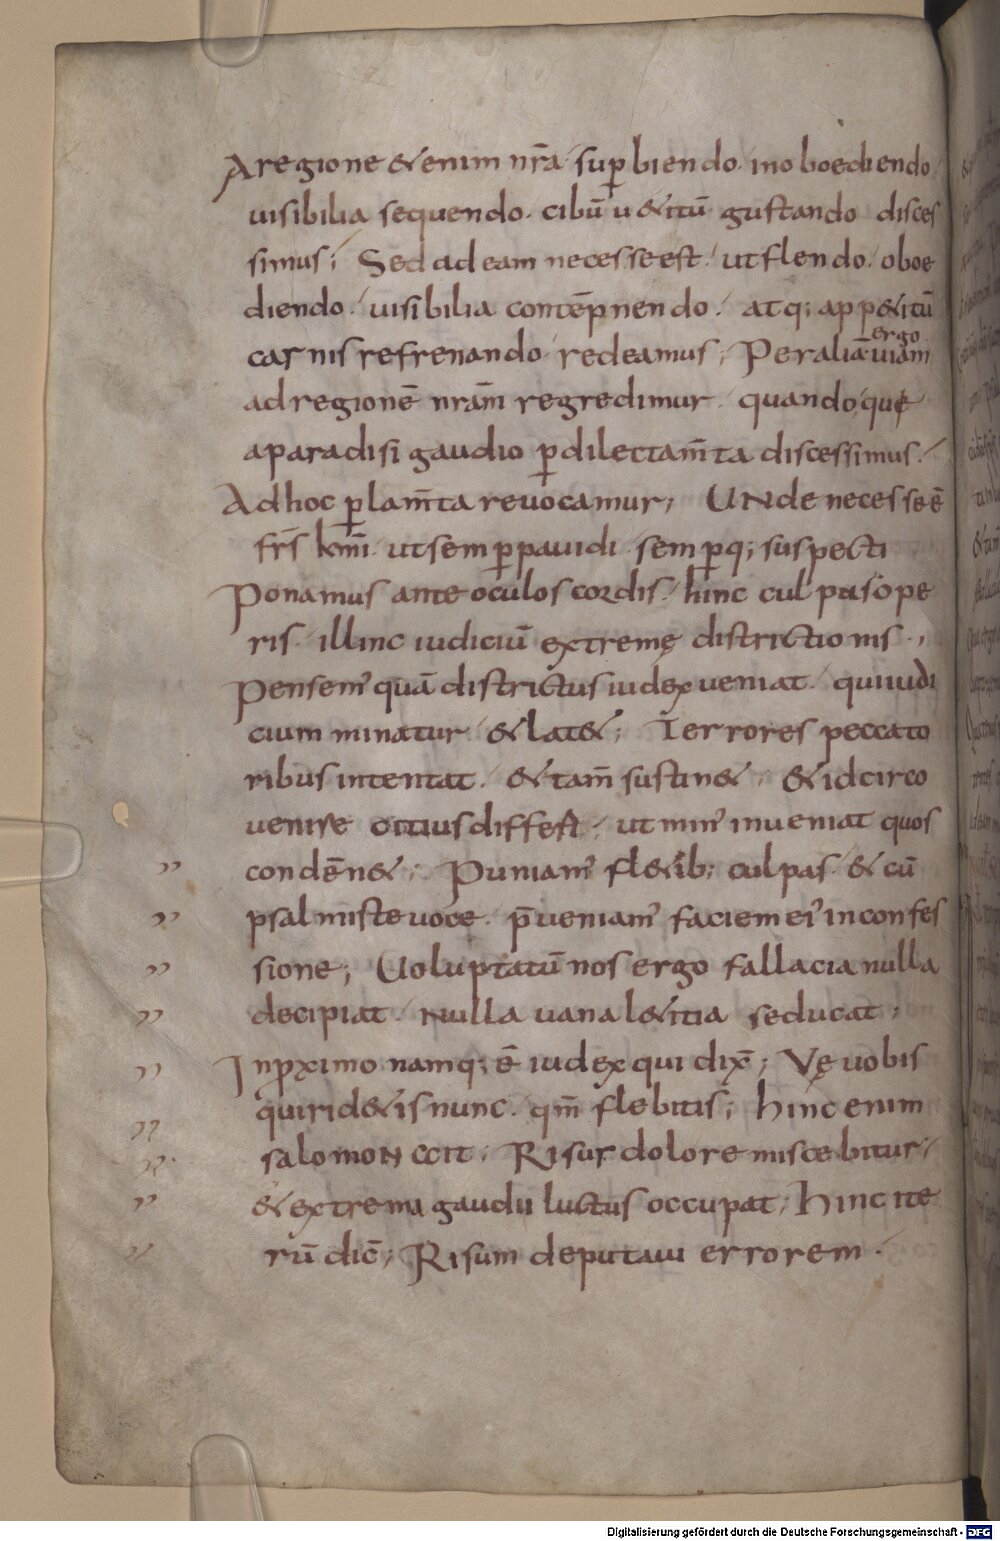 A regione &enim nr̄a sup̲biendo. inoboediendo.
uisibilia sequendo. cibū u&itū gustando disces
simus; Sed ad eam necesse est. ut flendo. oboe
diendo. uisibilia contēpnendo. atq; app&itū
carnis refrenando redeamus; Per aliā ergo uiam
ad regionē nrām regredimur. quando que
a paradisi gaudio p̲dilectam̄ta discessimus.
Ad hoc p̲lam̄ta reuocamur; UNde necesse ē
fr̄s km̄i. ut semp̲ pauidi semp̲q; suspecti
Ponamus ante oculos cordis. hinc culpas ope
ris. illinc iudiciū extremę districtionis.,
Pensem' quā districtus iudex ueniat. qui iudi
cium minatur & lat&; Terrores peccato
ribus intentat. & tam̄ sustin&. & idcirco
uenire ocius differt. ut min' inueniat quos
condēn&; Puniam' fl&ib; culpas. & cū
psalmiste uoce. p̄ueniam' faciem ei' in confes
sione; Uoluptatū nos ergo fallacia nulla
decipiat. Nulla uana l&itia seducat;
In p̲ximo namq; ē iudex qui dix̄; Vę uobis
qui rid&is nunc. qm̄ flebitis; hinc enim
salomoN ait; Risus dolore miscebitur;
& extrema gaudii luctus occupat; Hinc ite
rū dic̄; Risum deputaui errorem.
Digitalisierung gefördert durch die Deutsche Forschungsgemeinschaft - DFG